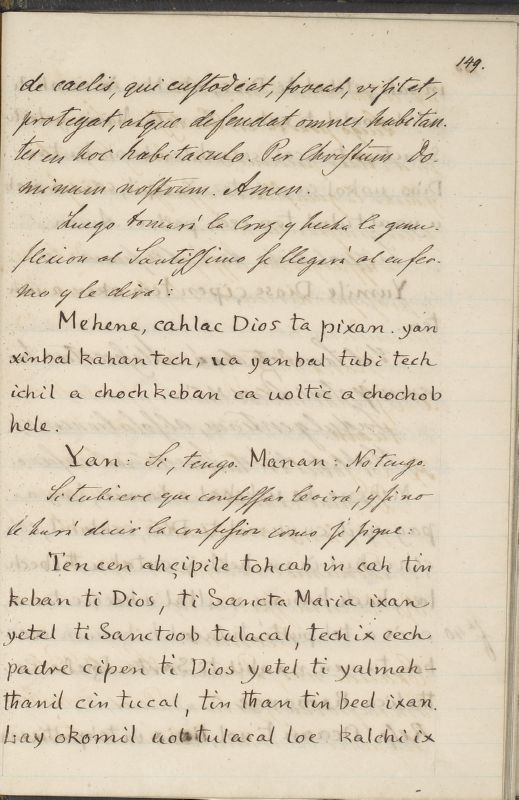 149.
de caelis, qui custodiat, foveat, visitet,
protegat, atque defendat omnes habitan-
tes in hoc habitaculo. Per Christum Do-
minum nostrum. Amen.
Luego tomará la Cruz y hecha la genu-
flexion al Santissimo se llegará al enfer-
mo y le dirá:
Mehene, cahlac Dios ta pixan. yan
xinbal kahan tech, ua yanbal tubi tech
ichil a chochkeban ca uoltic a chochob
hele.
Yan: Si, tengo. Manan: No tengo.
Si tubiere que confessar le oirá, y si no
le hará decir la confession como se sigue:
Ten cen ahçipile tohcab in cah tin
keban ti Dios, ti Sancta Maria ixan
yetel ti Sanctoob tulacal, tech ix cech
padre cipen ti Dios yetel ti yalmah-
thanil cin tucal, tin than tin beel ixan.
Lay okomil uol tulacal loe kalchi ix